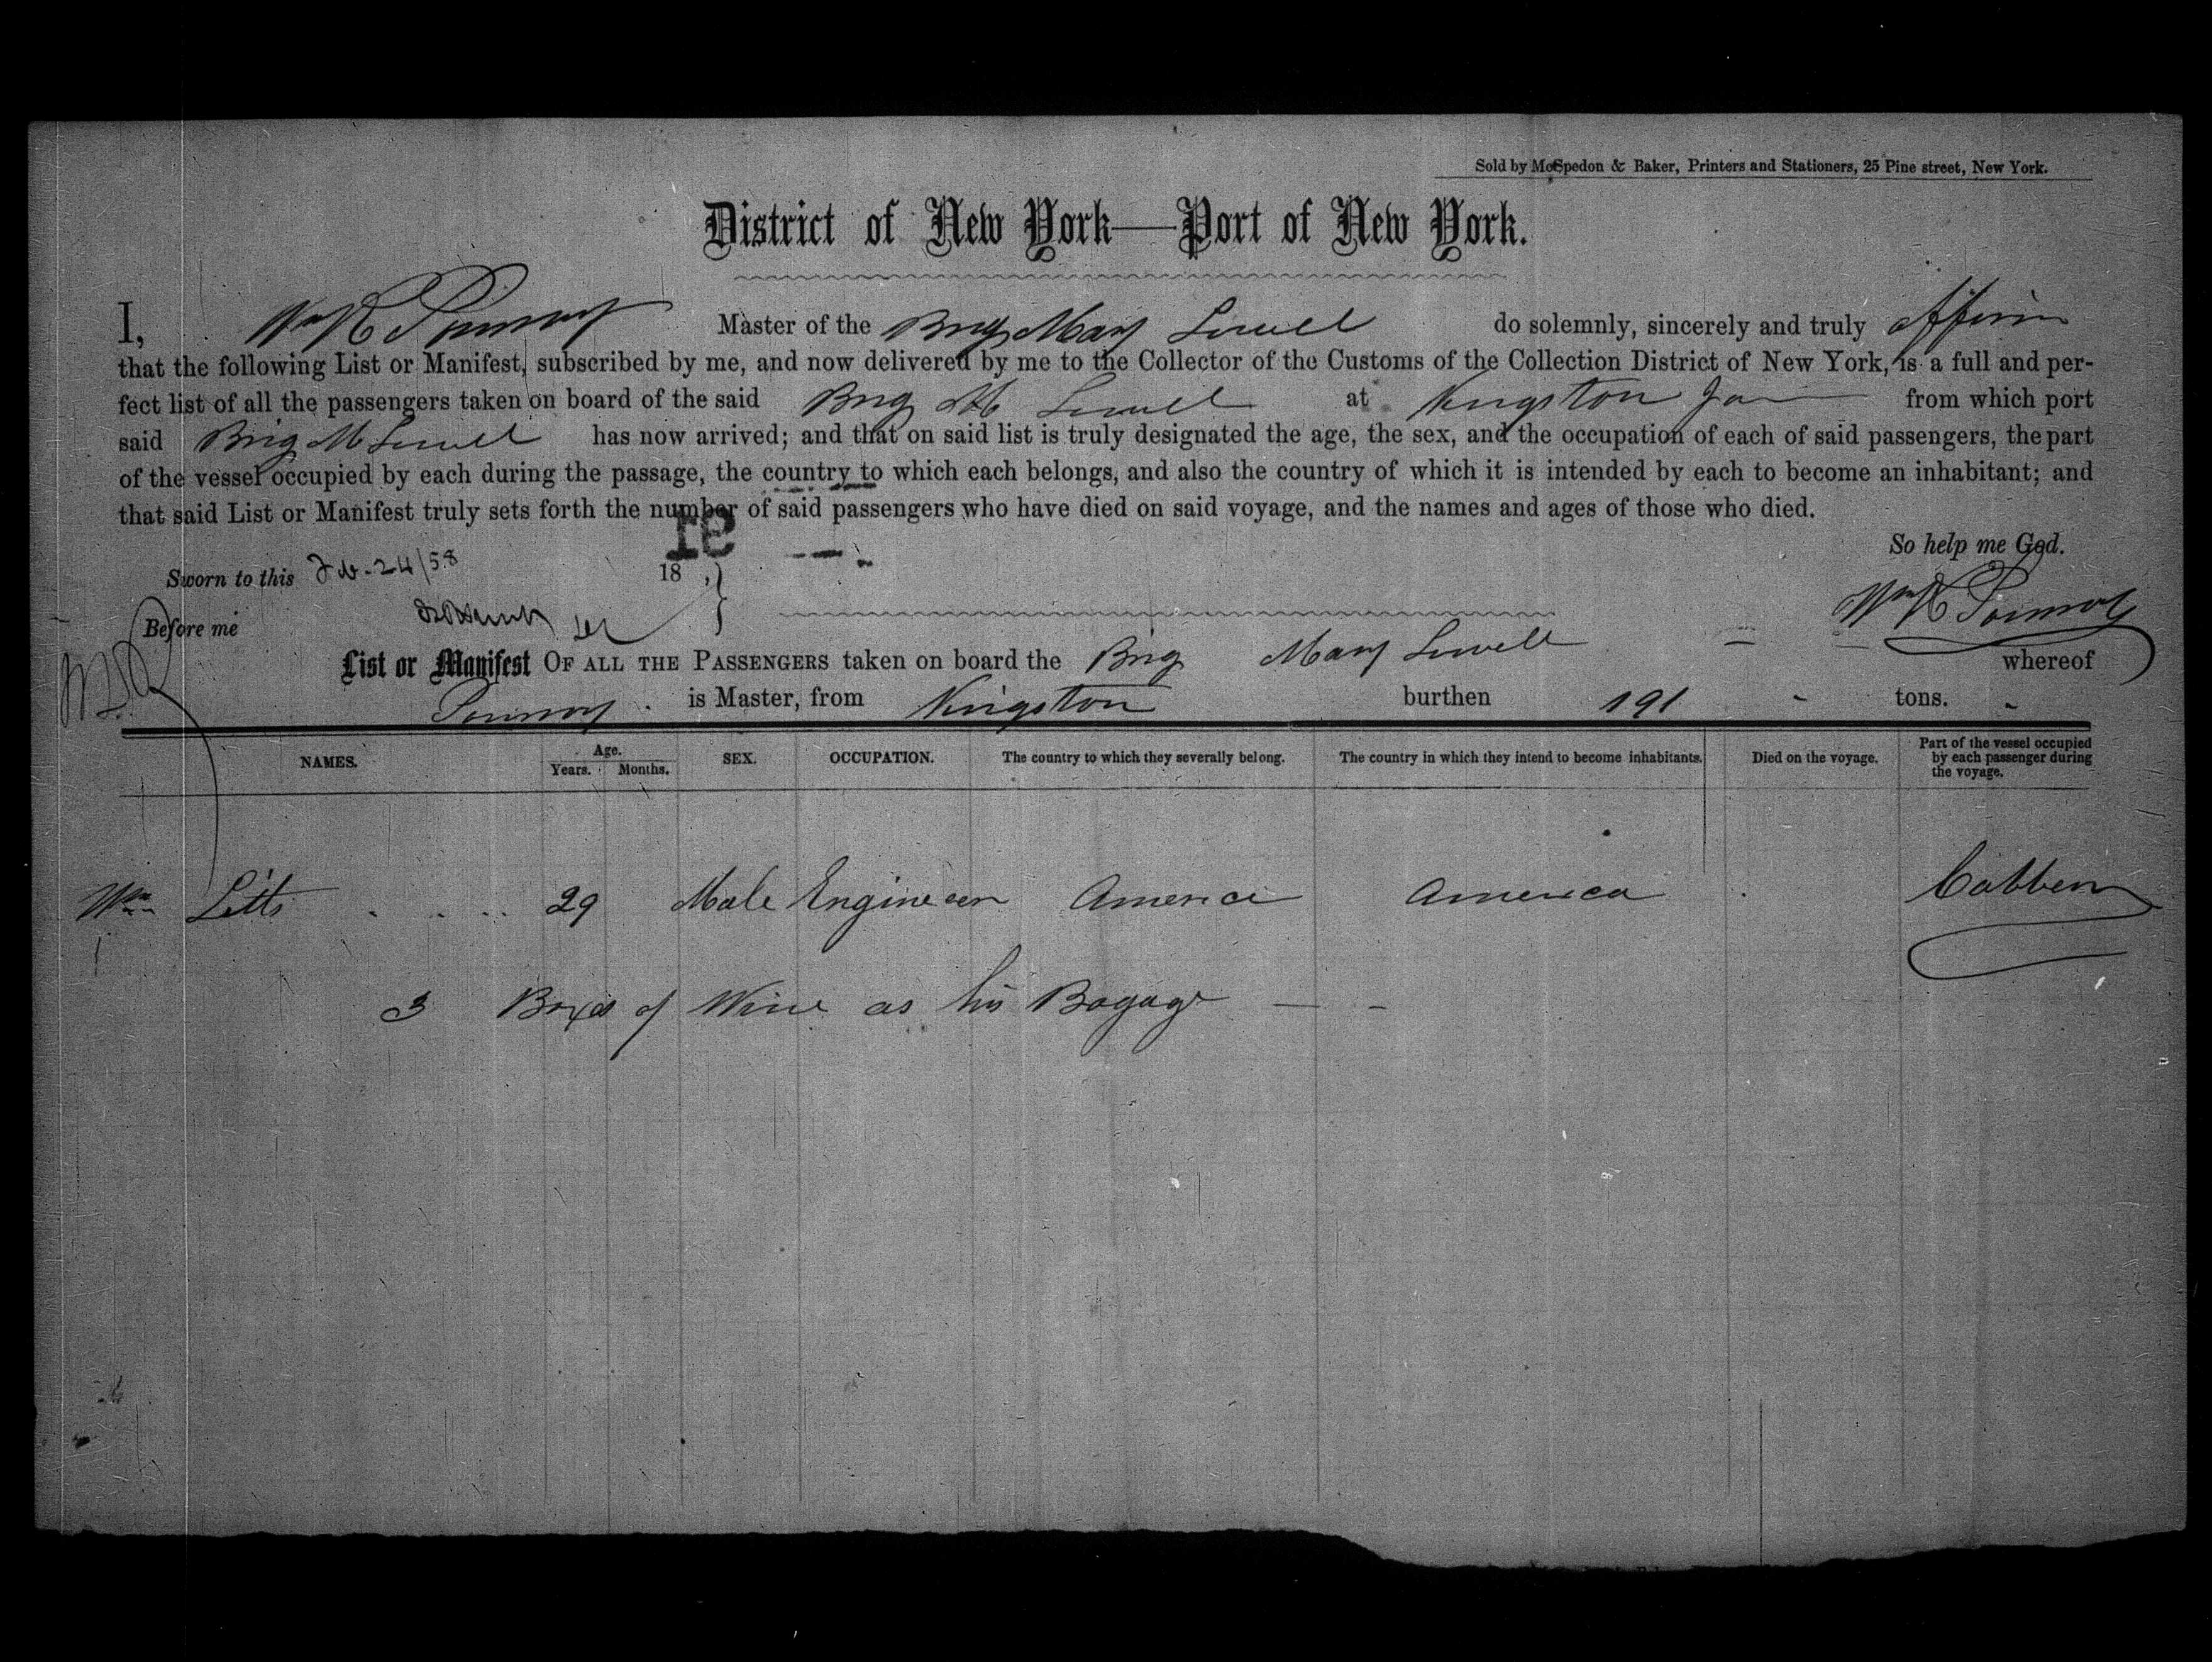 Sold by McSpedon & Baker, Printers and Stationers, 25 Pine street, New York.
District of New York—Port of New York.
I, Wm K Master of the Brig Mary Lowell do solemnly, sincerely and truly affirm
that the following List or Manifest, subscribed by me, and now delivered by me to the Collector of the Customs of the Collection District of New York, is a full and per-
fect list of all the passengers taken on board of the said Brig M Lowell at Kingston Ja from which port
said Brig M Lowell has now arrived; and that on said list is truly designated the age, the sex, and the occupation of each of said passengers, the part
of the vessel occupied by each during the passage, the country to which each belongs, and also the country of which it is intended by each to become an inhabitant; and
that said List or Manifest truly sets forth the number of said passengers who have died on said voyage, and the names and ages of those who died.
re
So help me God.
Sworn to this Feb. 24/58 18 ,
Wm K
Before me
List or Manifest OF ALL THE PASSENGERS taken on board the Brig Mary Lowell whereof
is Master, from Kingston burthen 191 tons.
NAMES. Age. Years. Months. SEX. OCCUPATION. The country to which they severally belong. The country in which they intend to become inhabitants. Died on the voyage. Part of the vessel occupied by each passenger during the voyage.
Wm Litts 29 Male Engineer America America Cabben
3 Boxes of Wine as his Bagage